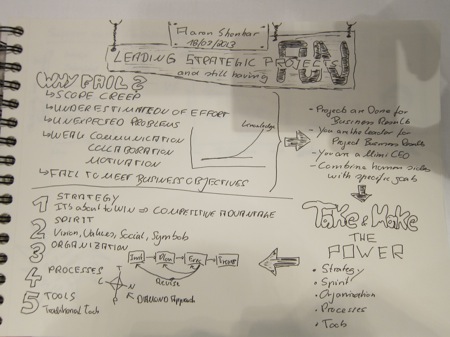 Aaron Shenhar
18/09/2013
LEADING STRATEGIC PROJECTS
and still having
FUN
WHY FAIL?
↳ SCOPE CREEP
↳ UNDERESTIMATION OF EFFORT
↳ UNEXPECTED PROBLEMS
↳ WEAK COMMUNICATION
COLLABORATION
MOTIVATION
↳ FAIL TO MEET BUSINESS OBJECTIVES
Knowledge
- Projects are Done for
Business Results
- You are the Leader for
Project Business Results
- You are a Mini CEO
- Combine human sides
with specific goals
Take & Make
THE
POWER
• Strategy
• Spirit
• Organization
• Processes
• Tools
1 STRATEGY
It's about to WIN ⇒ COMPETITIVE ADVANTAGE
2 SPIRIT
Vision, Values, Social, Symbols
3 ORGANIZATION
Plan
Exec
Revise
4 PROCESSES
T
N
DIAMOND Approach
5 TOOLS
Traditional Tools